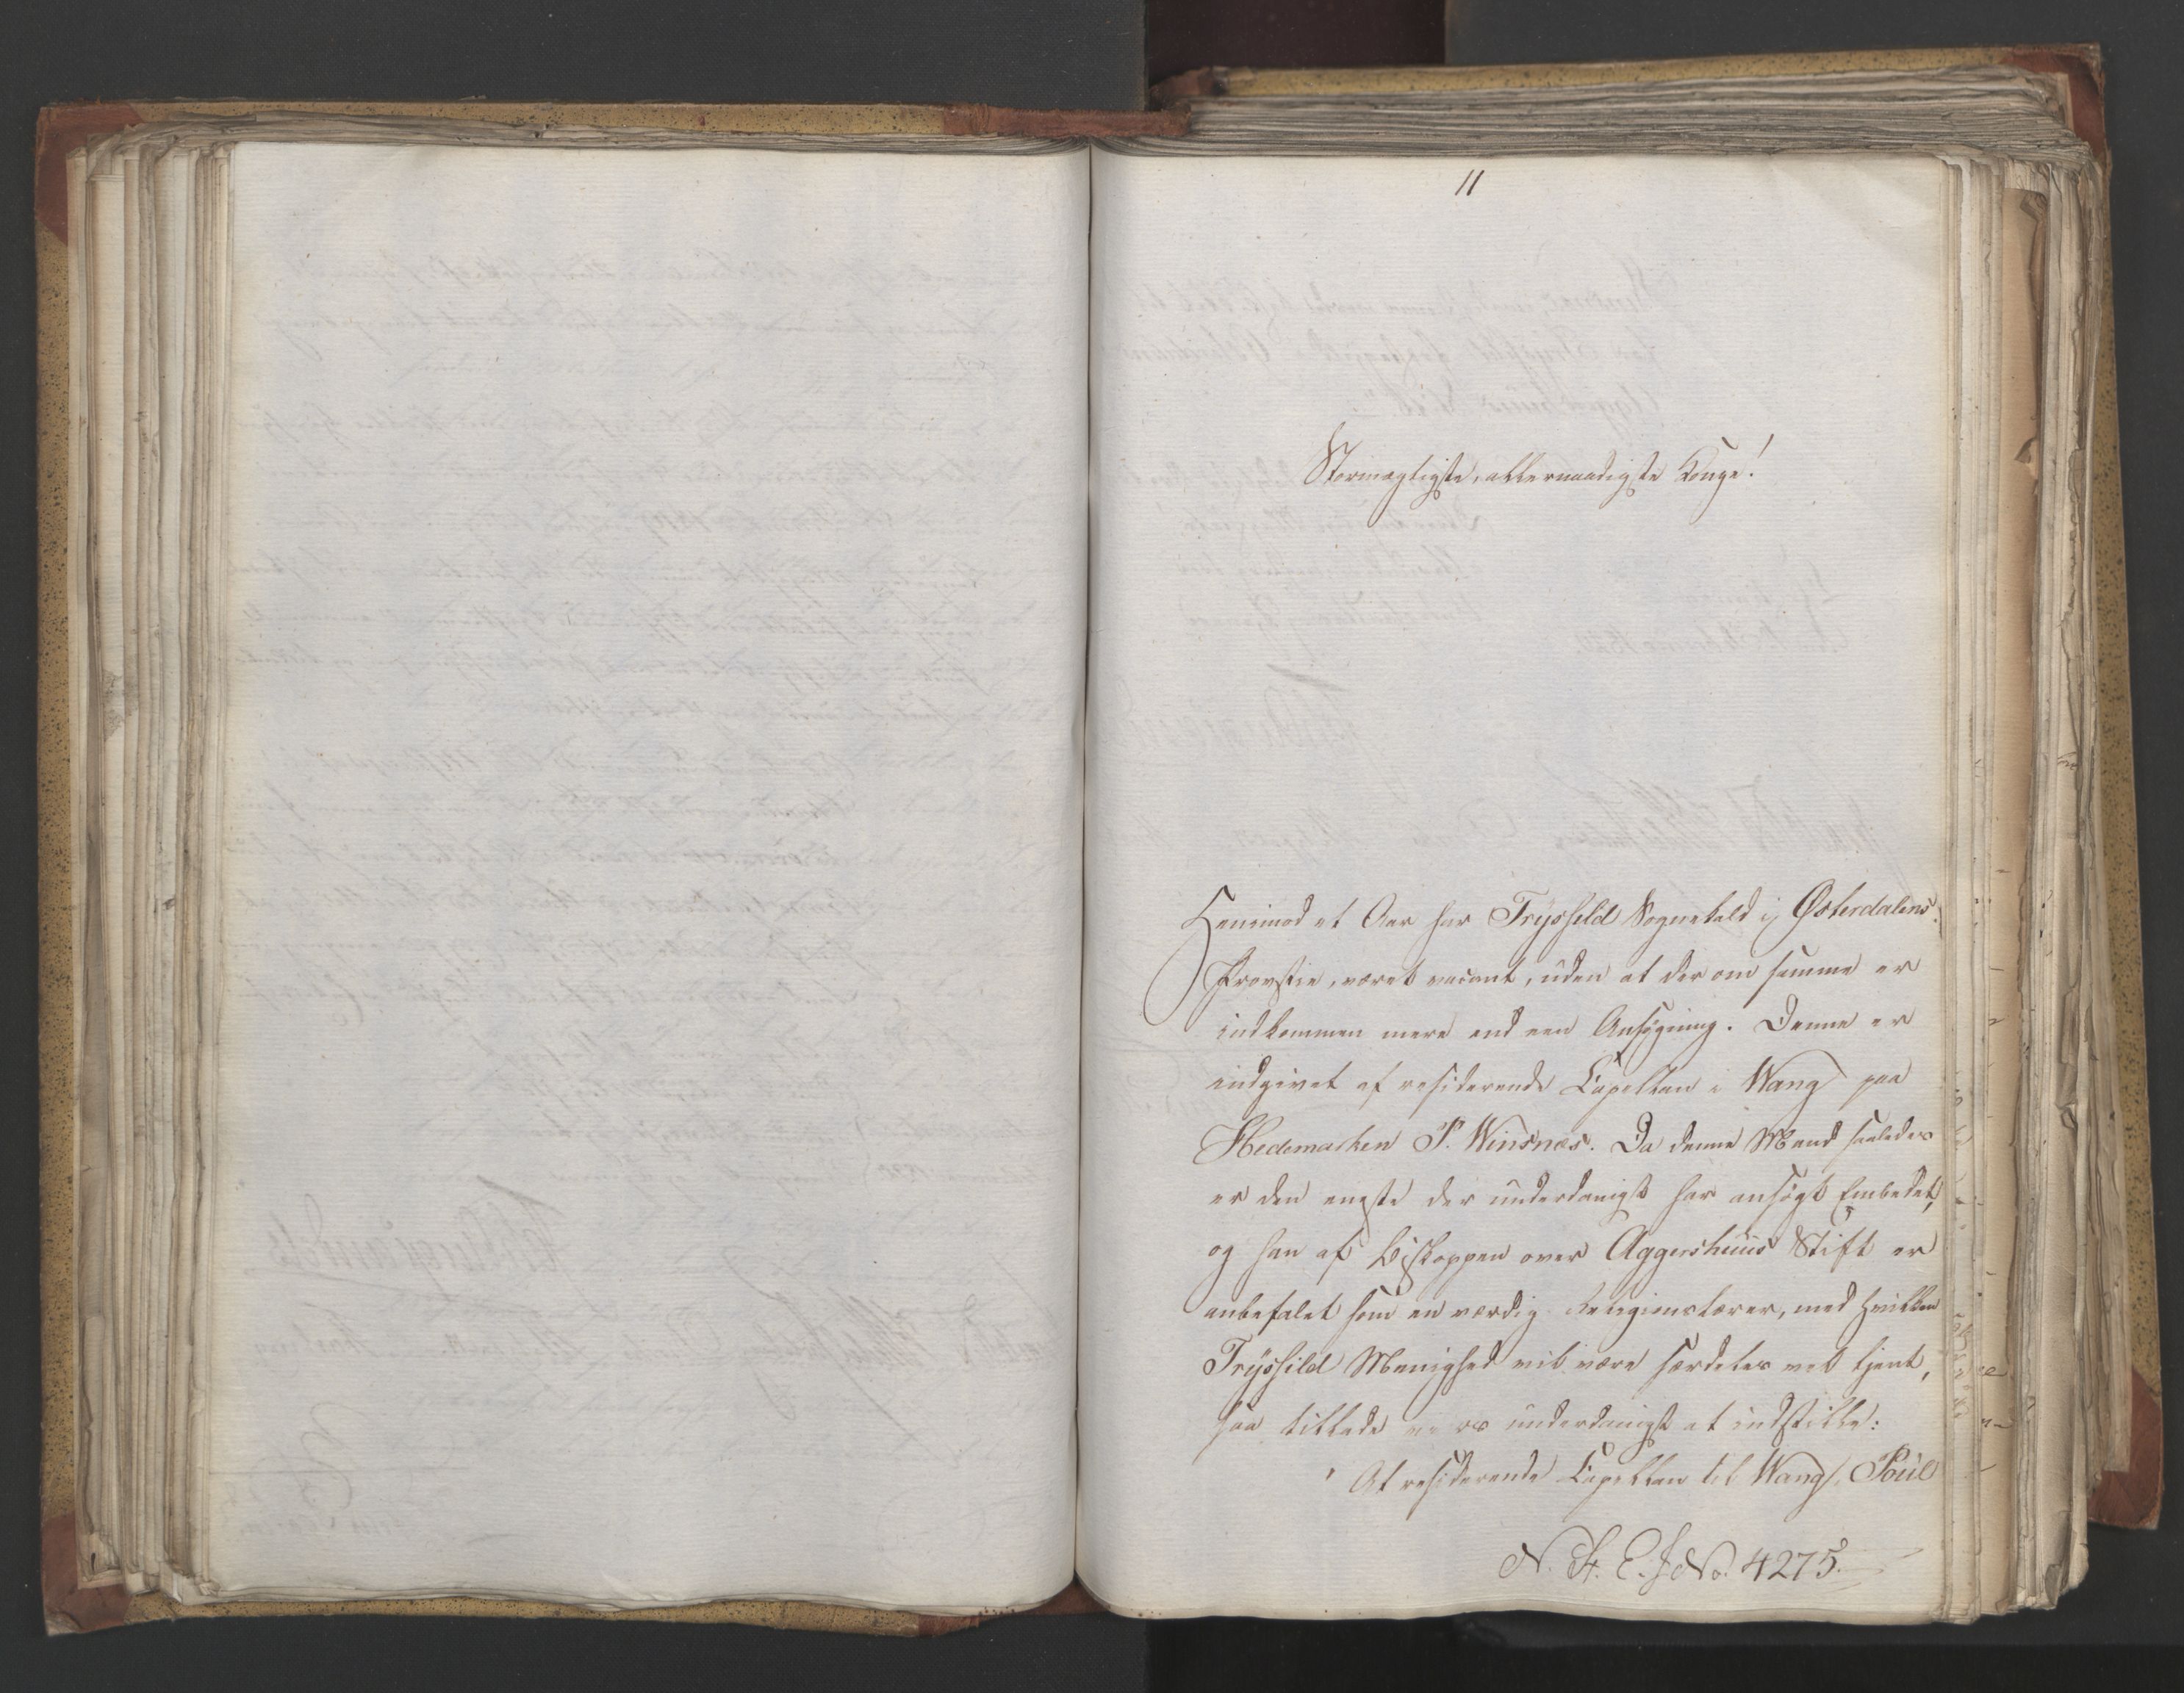 11
Stormægtigste, allernaadigste Konge!
Henimod et Aar har Tryssild Sognekald i Østerdalens
Provstie, været vacant, uden at der om samme er
indkommen mere end een Ansøgning. Denne er
indgivet af residerende Capellan i Wang paa
Hedemarken P. Winsnes. Da denne Mand saaledes
er den eneste der underdanigst har ansøgt Embedet,
og han af Biskoppen over Aggershuus Stift er
anbefalet som en værdig Religionslærer, med hvilken
Tryssild Menighed vil være særdeles vel tjent,
saa tillade vi os underdanigst at indstille:
At residerende Capellan til Wang, Poul
No. 4275.